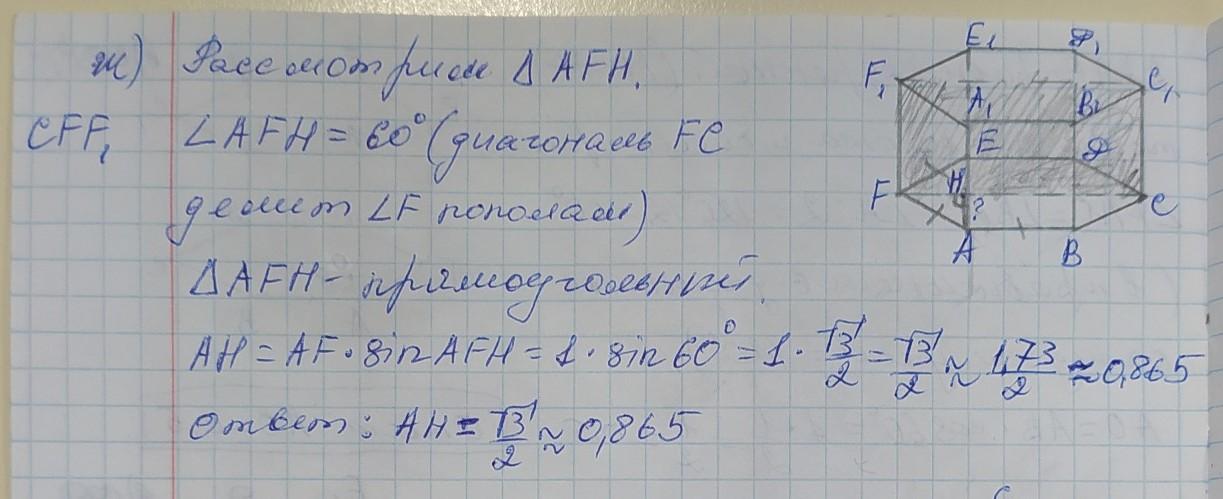 ж) Рассмотрим Δ AFH.
CFF₁ ∠AFH = 60° (диагональ FC
делит ∠F пополам)
ΔAFH - прямоугольный.
AH = AF · sin AFH = 1 · sin 60° = 1 · √3/2 = √3/2 ≈ 1,73/2 ≈ 0,865
Ответ: AH = √3/2 ≈ 0,865
E₁ D₁
F₁ A₁ B₁ C₁
E D
F H C
?
A B